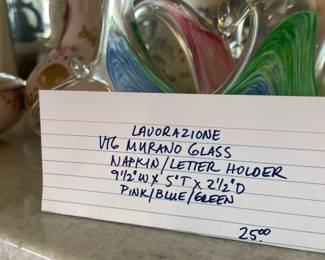 LAVORAZIONE
VTG MURANO GLASS
NAPKIN/LETTER HOLDER
9½"W X 5"T X 2½"D
PINK/BLUE/GREEN
25.00